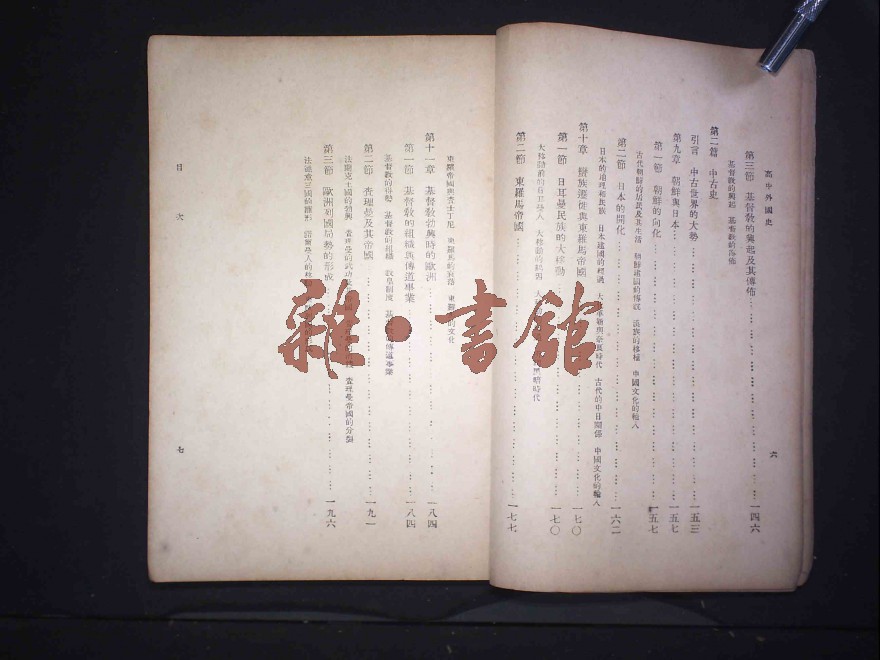 高中外國史
六
第三節 基督敎的興起及其傳佈……一四六
基督敎的興起 基督敎的傳佈
第二篇 中古史
引言 中古世界的大勢……一五三
第九章 朝鮮與日本……一五七
第一節 朝鮮的向化……一五七
古代朝鮮的居民及其生活 朝鮮建國的傳說 漢族的移植 中國文化的輸入
第二節 日本的開化……一六二
日本的地理和民族 日本建國的經過 古代的中日關係 中國文化的輸入
第十章 蠻族遷徙與東羅馬帝國……一七〇
第一節 日耳曼民族的大移動……一七〇
大移動前的日耳曼人 大移動的原因 黑暗時代
第二節 東羅馬帝國……一七七
東羅帝國與查士丁尼 東羅馬的 東羅 的文化
第十一章 基督敎勃興時的歐洲……一八四
第一節 基督敎的組織與傳道事業……一八四
基督敎的得勢 基督敎的組織 敎皇制度 基督 傳道事業
第二節 查理曼及其帝國……一九一
法蘭克王國的勃興 查理曼的武功 查理曼帝國的分裂
第三節 歐洲列國局勢的形成……一九六
法德意三國的
目次
七
雜·書館